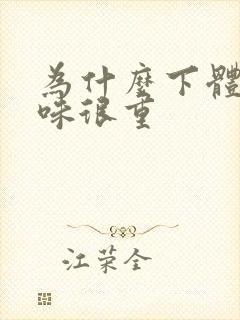 為什麼下體
味很重
江荣全